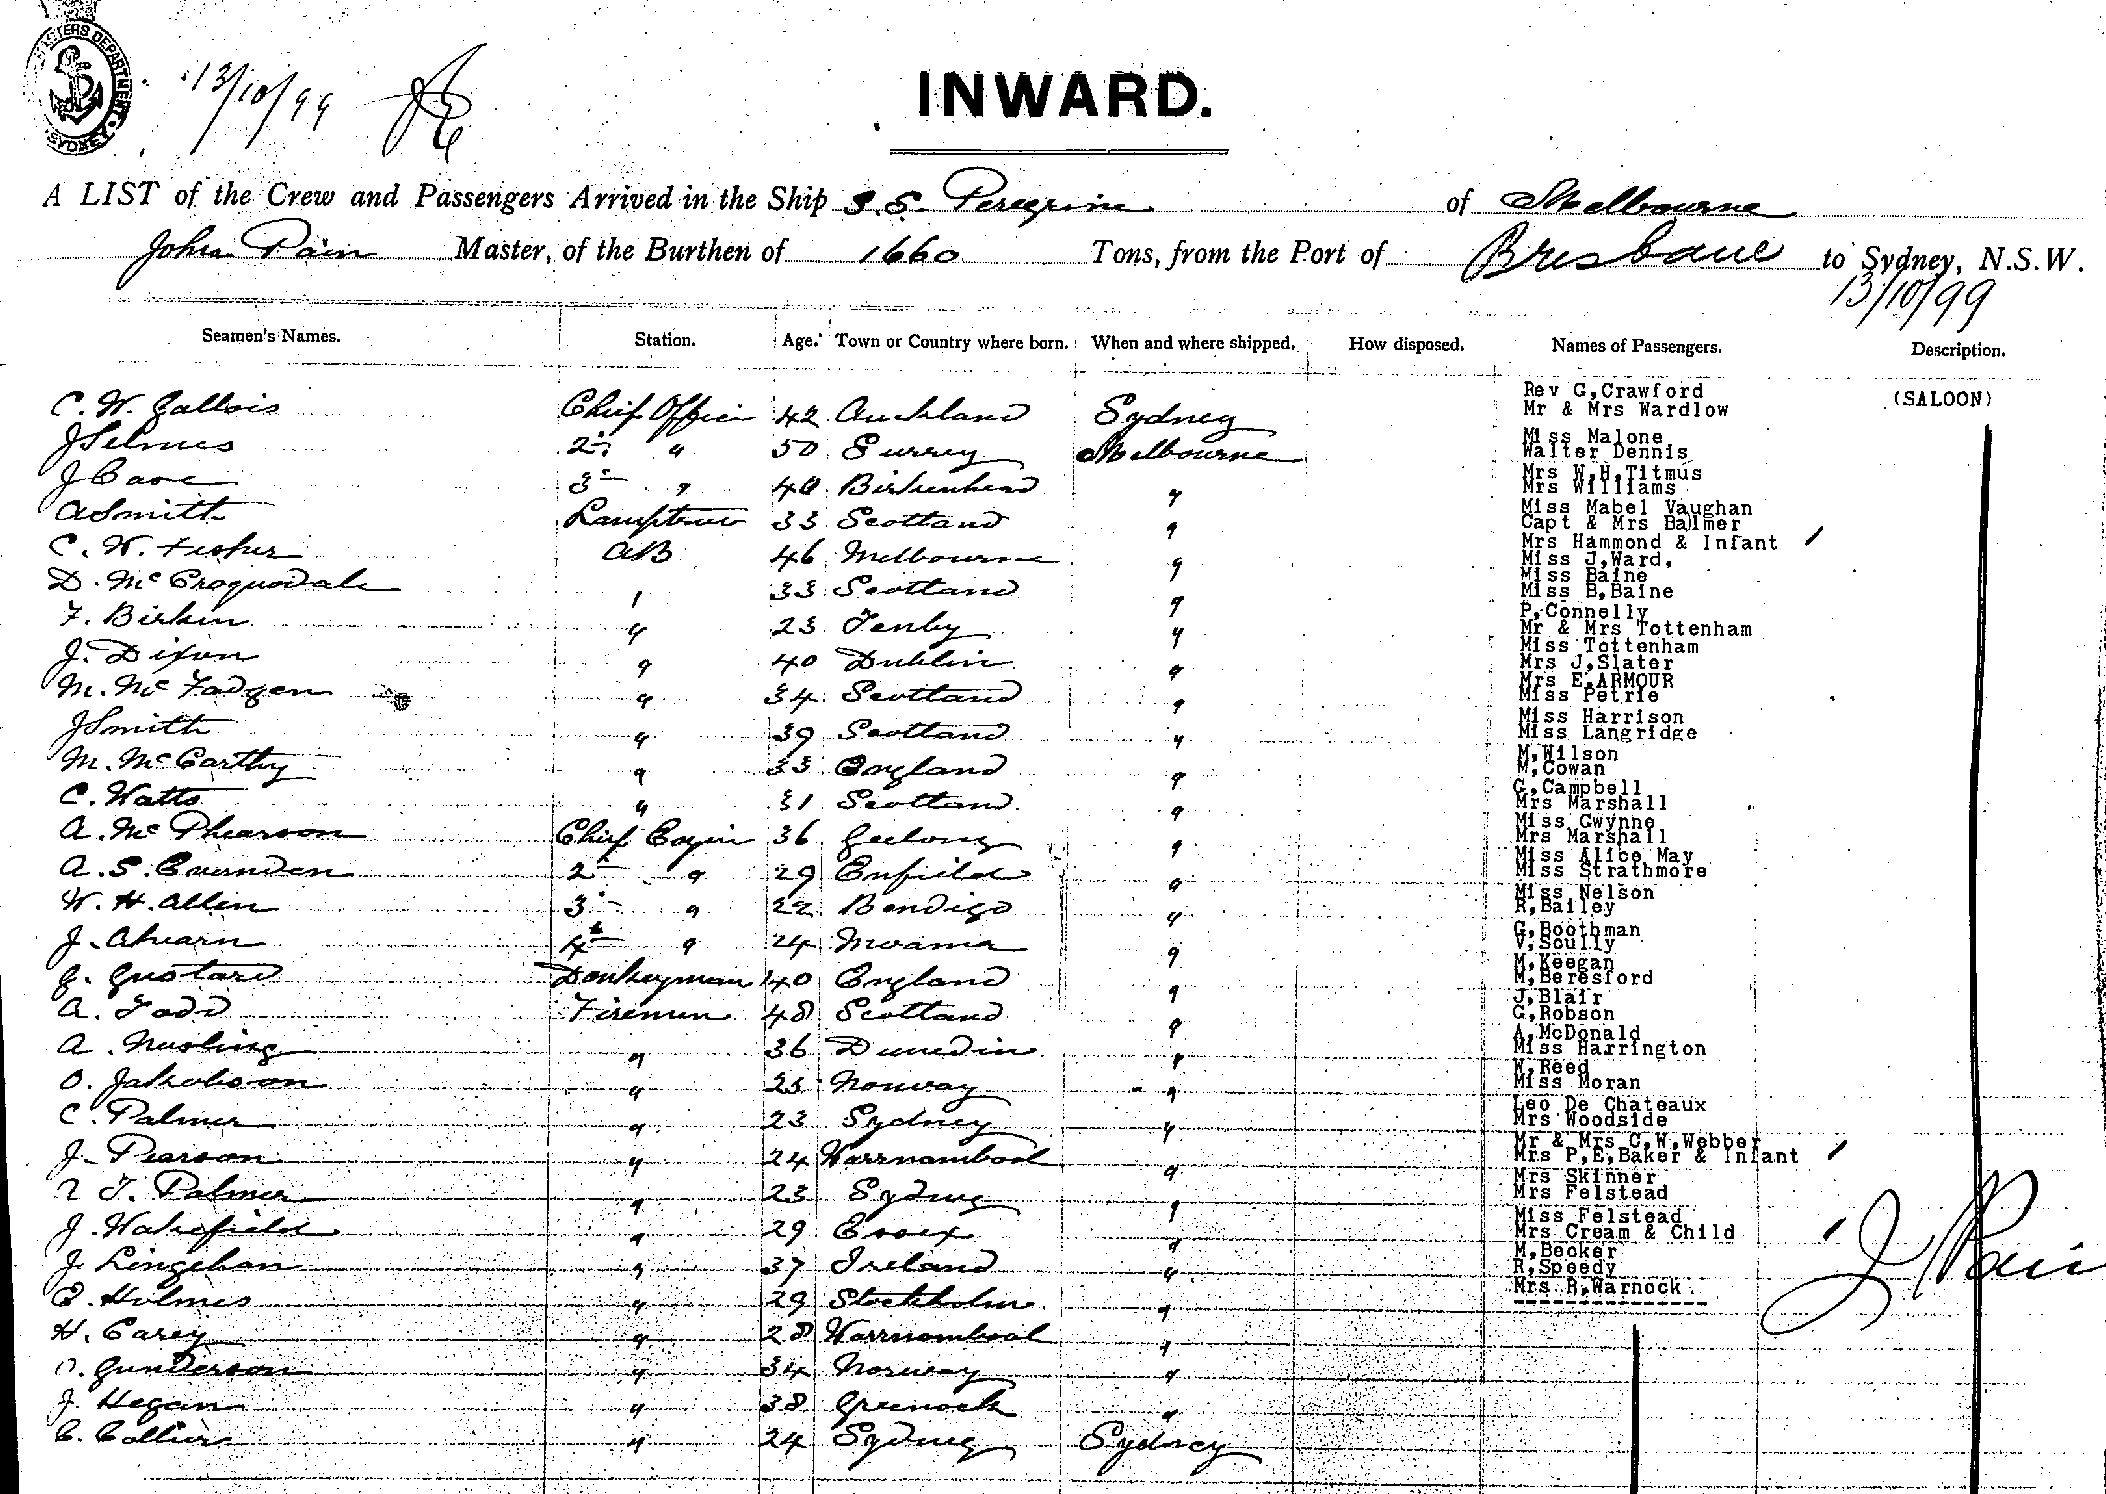 MASTERS DEPARTMENT. SYDNEY
13/10/99
INWARD.
A LIST of the Crew and Passengers Arrived in the Ship S.S. Peregrine of Melbourne
John Pain Master, of the Burthen of 1660 Tons, from the Port of Brisbane to Sydney, N.S.W.
13/10/99
Seamen's Names. Station. Age. Town or Country where born. When and where shipped. How disposed. Names of Passengers. Description.
C. W. Gallois Chief Officer 42 Auckland Sydney
J Selmes 2nd " 50 Surrey Melbourne
J Cave 3rd " 40 Birkenhead "
A Smith Lamptrimr 33 Scotland "
C. W. Fisher AB 46 Melbourne "
D. McCroquodale " 33 Scotland "
F. Birkin " 23 Tenby "
J. Dixon " 40 Dublin "
M. McFadgen " 34 Scotland "
J Smith " 39 Scotland "
M. McCarthy " 33 England "
C. Watts " 31 Scotland "
A. McPhearson Chief Engin 36 Geelong "
A. S. 2nd " 29 Enfield "
W. H. Allen 3rd " 22 Bendigo "
J. Ahearn 4th " 24 Moama "
J. Gustard Donkeyman 40 England "
A. Todd Firemen 48 Scotland "
A. " 36 Dunedin "
O. Jakobson " 25 Norway "
C. Palmer " 23 Sydney "
J. Pearson " 24 Warrnambool "
T. Palmer " 23 Sydney "
J. Wakefield " 29 Essex "
J. Lingehan " 37 Ireland "
C. Holmes " 29 Stockholm "
H. Carey " 28 Warrnambool "
Gunderson " 34 Norway "
J. Hegan " 38 Greenock "
C. Collier " 24 Sydney Sydney
Rev G,Crawford (SALOON)
Mr & Mrs Wardlow
Miss Malone
Walter Dennis
Mrs W,H,Titmus
Mrs Williams
Miss Mabel Vaughan
Capt & Mrs Balmer
Mrs Hammond & Infant
Miss J,Ward,
Miss Baine
Miss B,Baine
P,Connelly
Mr & Mrs Tottenham
Miss Tottenham
Mrs J,Slater
Mrs E,ARMOUR
Miss Petrie
Miss Harrison
Miss Langridge
M,Wilson
M,Cowan
G,Campbell
Mrs Marshall
Miss Gwynne
Mrs Marshall
Miss Alice May
Miss Strathmore
Miss Nelson
R,Bailey
G,Boothman
V,Scully
M,Keegan
M,Beresford
J,Blair
G,Robson
A,McDonald
Miss Harrington
W,Reed
Miss Moran
Leo De Chateaux
Mrs Woodside
Mr & Mrs C,W,Webber
Mrs P,E,Baker & Infant
Mrs Skinner
Mrs Felstead
Miss Felstead
Mrs Cream & Child
M,Becker
R,Speedy
Mrs R,Warnock
J Pain